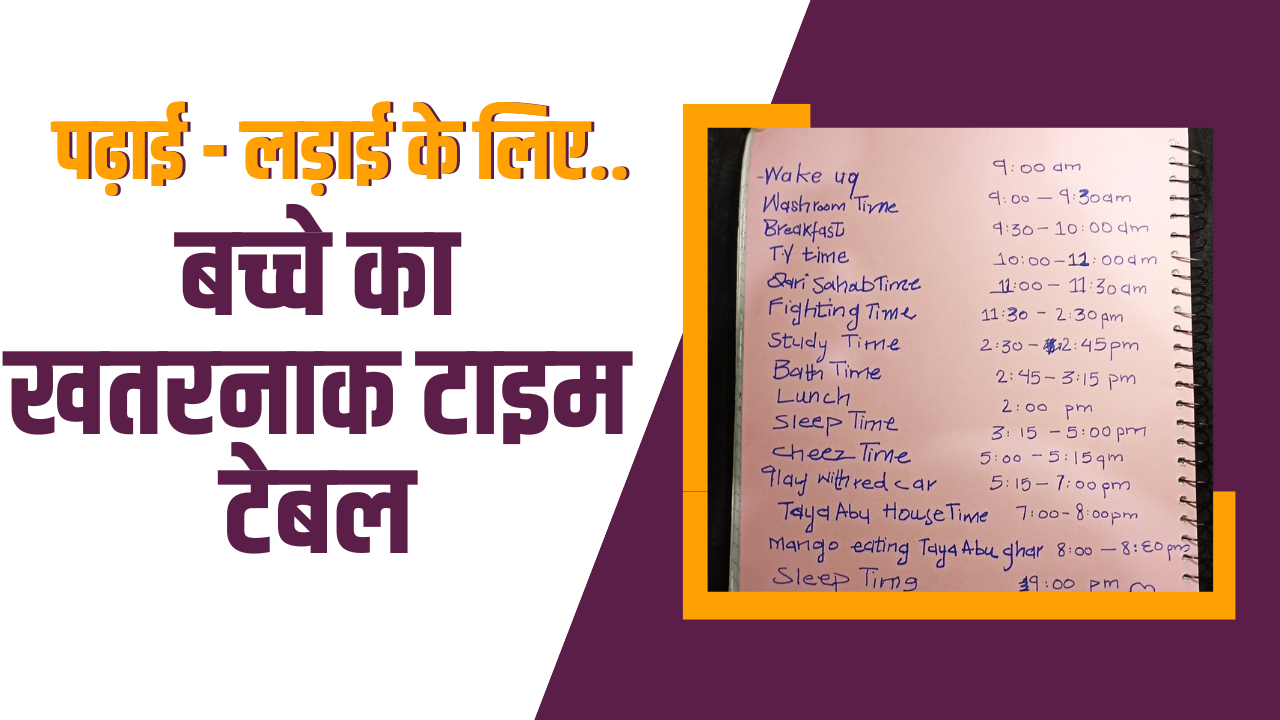 पढ़ाई - लड़ाई के लिए..
बच्चे का
खतरनाक टाइम
टेबल
-Wake up 9:00 am
Washroom Time 9:00 - 9:30am
Breakfast 9:30-10:00 am
T.V time 10:00-11:00am
Qari Sahab Time 11:00 - 11:30am
Fighting Time 11:30 - 2:30pm
Study Time 2:30 - 2:45pm
Bath Time 2:45-3:15 pm
Lunch 2:00 pm
Sleep Time 3:15 -5:00pm
cheez Time 5:00 -5:15pm
Play with red car 5:15-7:00pm
Taya Abu House Time 7:00-8:00pm
Mango eating Taya Abu ghar 8:00 -8:30pm
Sleep Time 9:00 pm